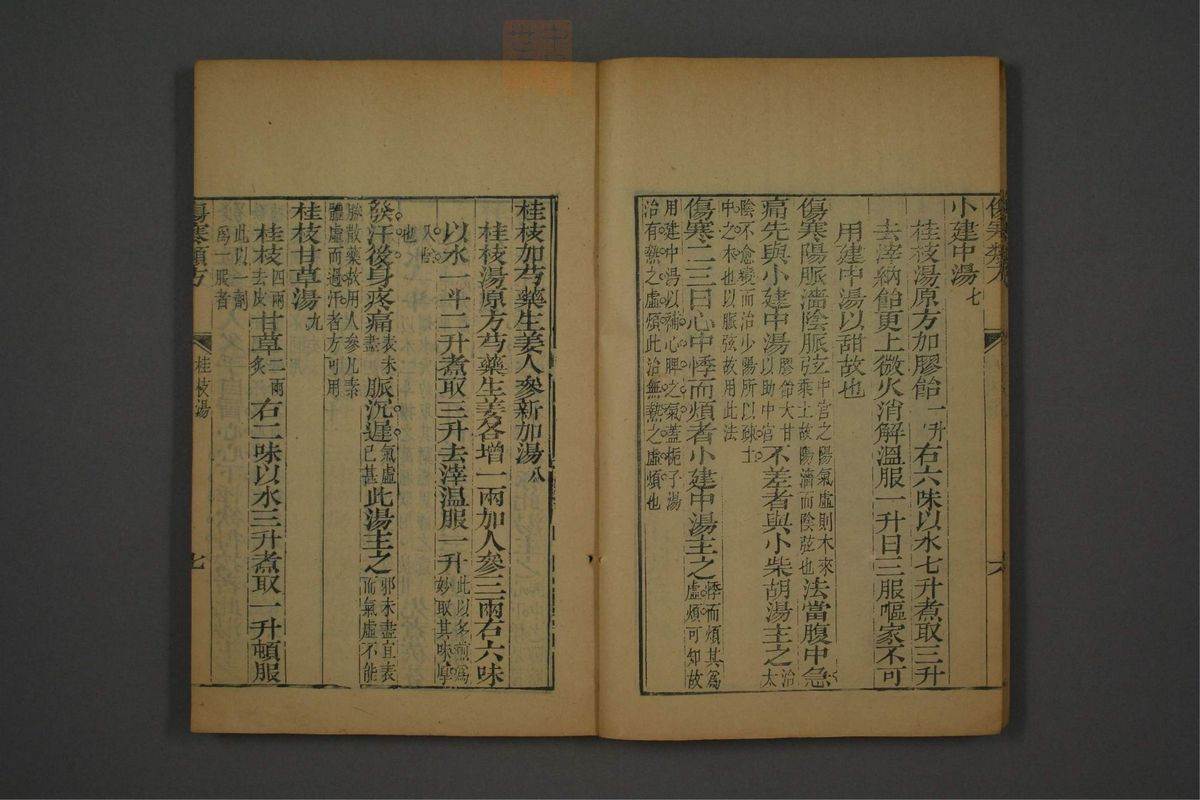 小建中湯七
桂枝湯原方加膠飴一升右六味以水七升煮取三升
去滓納飴更上微火消解溫服一升日三服嘔家不可
用建中湯以甜故也
傷寒陽脈濇陰脈弦中宮之陽氣虛則木來乘土故陽濇而陰弦也法當腹中急
痛先與小建中湯膠飴大甘以助中宮不差者與小柴胡湯主之治太
陰不愈變而治少陽所以疎土中之木也以脈弦故用此法
傷寒二三日心中悸而煩者小建中湯主之悸而煩其為虛煩可知故
用建中湯以補心脾之氣蓋梔子湯治有熱之虛煩此治無熱之虛煩也
桂枝加芍藥生姜人參新加湯八
桂枝湯原方芍藥生姜各增一兩加人參三兩右六味
以水一斗二升煮取三升去滓溫服一升此以多煎為妙取其味厚
也
發汗後身疼痛表未盡脈沉遲氣虛已甚此湯主之邪未盡宜表而氣虛不能
勝散藥故用人參凡素體虛而過汗者方可用
桂枝甘草湯九
桂枝四兩去皮甘草二兩炙右二味以水三升煮取一升頓服
此以一劑為一服者
傷寒類方
桂枝湯
七